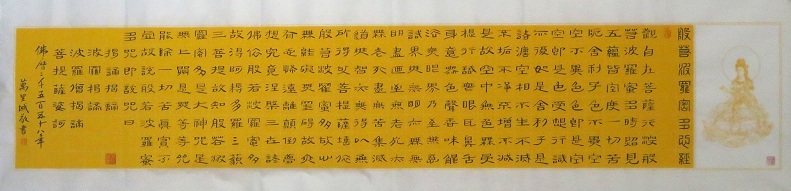 般若波羅蜜多心經
觀自在菩薩行深般
若波羅蜜多時照見
五蘊皆空度一切苦
厄舍利子色不異空
空不異色色即是空
空即是色受想行識
亦復如是舍利子是
諸法空相不生不滅
不垢不淨不增不減
是故空中無色無受
想行識無眼耳鼻舌
身意無色聲香味觸
法無眼界乃至無意
識界無無明亦無無
明盡乃至無老死亦
無老死盡無苦集滅
道無智亦無得以無
所得故菩提薩埵依
般若波羅蜜多故心
無罣礙無罣礙故無
有恐怖遠離顛倒夢
想究竟涅槃三世諸
佛依般若波羅蜜多
故得阿耨多羅三藐
三菩提故知般若波
羅蜜多是大神咒是
無上咒是無等等咒
能除一切苦真實不
虛故說般若波羅蜜
多咒即說咒曰
揭諦揭諦
波羅揭諦
波羅僧揭諦
菩提薩婆訶
佛曆二千五百五十八年
萬里城敬書